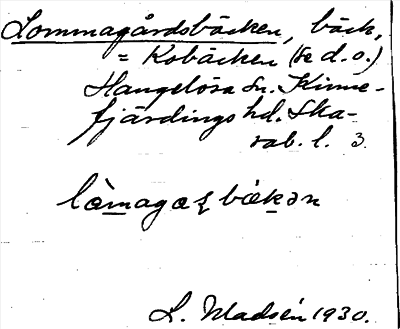 Lommagårdsbäcken, bäck,
= Kobäcken (se d.o.)
Hangelösa sn. Kinne-
fjärdings hd. Ska-
rab. l. 3
L. Madsén 1930.